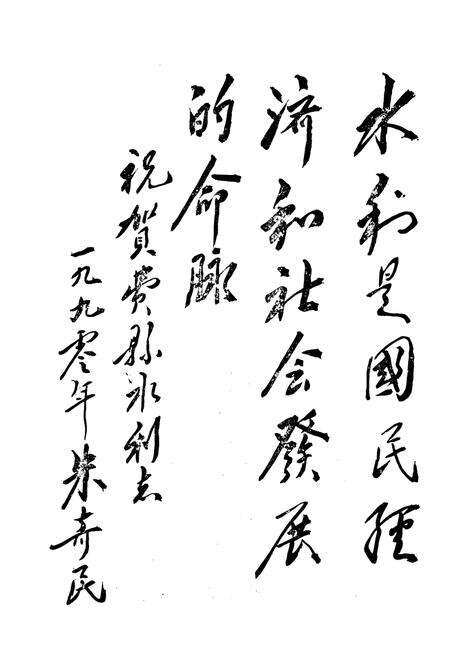 水利是國民經
濟和社会發展
的命脉
祝賀费縣水利志
一九九零年 朱奇民